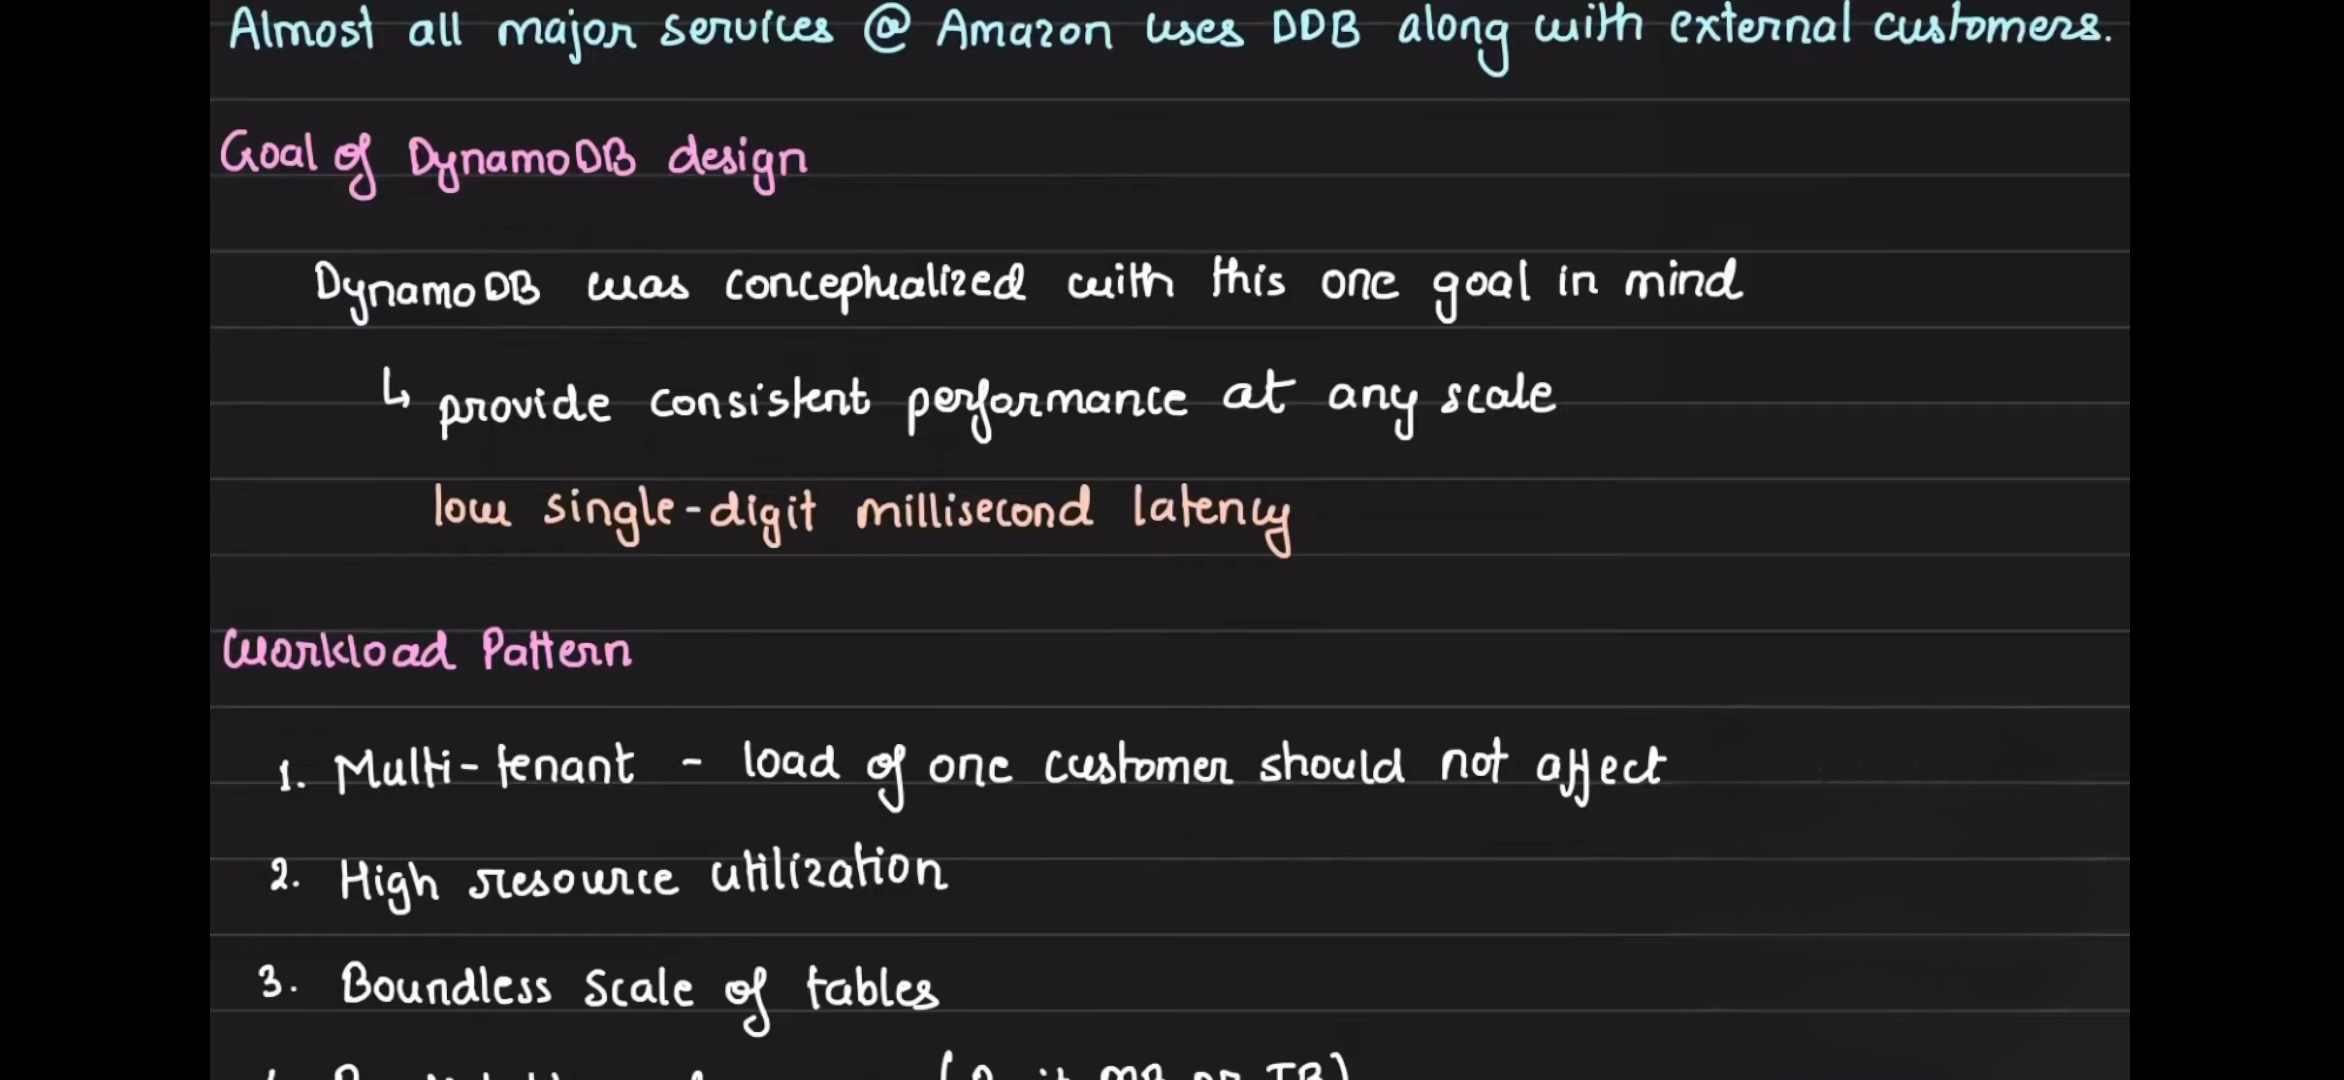 Almost all major services @ Amazon uses DDB along with external customers.
Goal of DynamoDB design
DynamoDB was conceptualized with this one goal in mind
↳ provide consistent performance at any scale
low single-digit millisecond latency
Workload Pattern
1. Multi-tenant - load of one customer should not affect
2. High resource utilization
3. Boundless scale of tables
MB or TB)